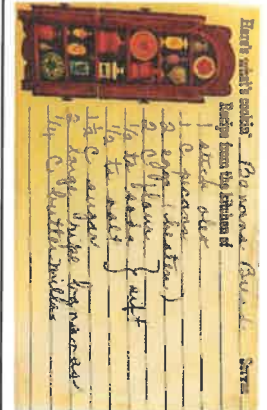 Here's what's cookin' Banana Bread Serves
Recipe from the kitchen of
1 stick oleo
1 C pecans
2 eggs (beaten)
2 C flour
1/2 ts soda } sift
1/2 ts salt
1 1/2 C sugar
2 large ripe bananas
1/4 C buttermilk